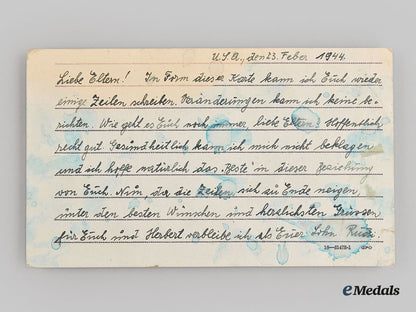 U.S.A., den 23. Feber 1944.
Liebe Eltern! In Form dieser Karte kann ich Euch wieder
einige Zeilen schreiben. Veränderungen kann ich keine be-
richten. Wie geht es Euch noch immer, liebe Eltern? Hoffentlich
recht gut. Gesundheitlich kann ich mich nicht beklagen
und ich hoffe natürlich das "Beste" in dieser Beziehung
von Euch. Nun da die Zeilen sich zu Ende neigen,
unter den besten Wünschen und herzlichsten Grüssen
für Euch und Herbert verbleibe ich als Euer Sohn Rudi.
16—81478-1 GPO
eMedals